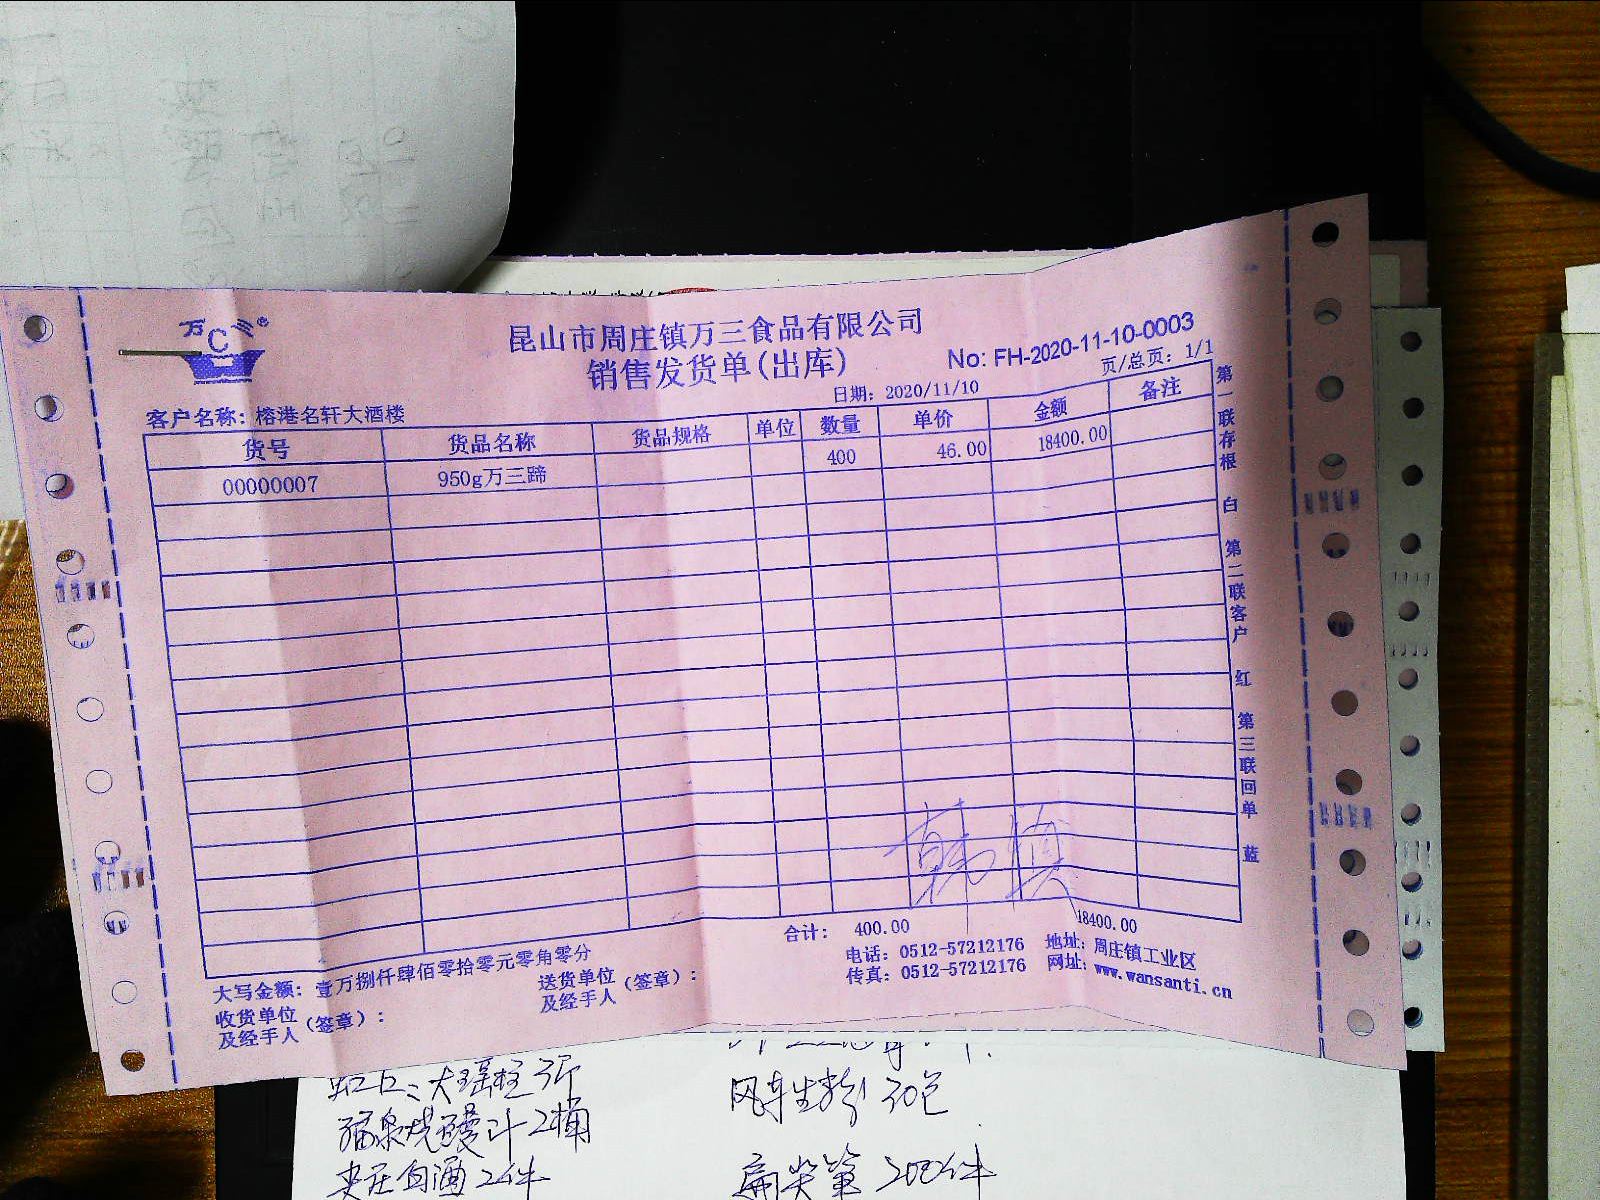 万C三®
昆山市周庄镇万三食品有限公司
销售发货单(出库)
No: FH-2020-11-10-0003
日期: 2020/11/10
页/总页: 1/1
客户名称: 榕港名轩大酒楼
货号 货品名称 货品规格 单位 数量 单价 金额 备注
00000007 950g万三蹄 400 46.00 18400.00
第一联存根 白 第二联客户 红 第三联回单 蓝
合计: 400.00 18400.00
大写金额: 壹万捌仟肆佰零拾零元零角零分
电话: 0512-57212176 地址: 周庄镇工业区
传真: 0512-57212176 网址: www.wansanti.cn
收货单位
及经手人(签章):
送货单位
及经手人(签章):
大瑶柱
2桶
白酒2件
风车生粉30包
扁尖笋200件